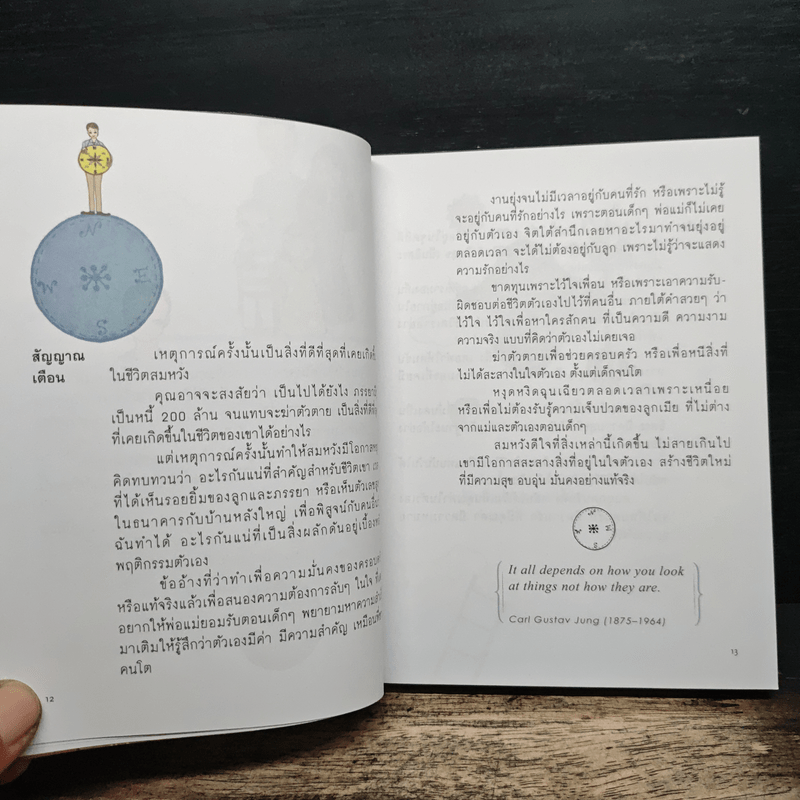 N
W E
S
สัญญาณ
เตือน
เหตุการณ์ครั้งนั้นเป็นสิ่งที่ดีที่สุดที่เคยเกิดขึ้น
ในชีวิตสมหวัง
คุณอาจจะสงสัยว่า เป็นไปได้ยังไง ภรรยา
เป็นหนี้ 200 ล้าน จนแทบจะฆ่าตัวตาย เป็นสิ่งที่ดี
ที่เคยเกิดขึ้นในชีวิตของเขาได้อย่างไร
แต่เหตุการณ์ครั้งนั้นทำให้สมหวังมีโอกาส
คิดทบทวนว่า อะไรกันแน่ที่สำคัญสำหรับชีวิตเขา
ที่ได้เห็นรอยยิ้มของลูกและภรรยา หรือเห็นตัวเลข
ในธนาคารกับบ้านหลังใหญ่ เพื่อพิสูจน์กับคนอื่น
ฉันทำได้ อะไรกันแน่ที่เป็นสิ่งผลักดันอยู่เบื้อง
พฤติกรรมตัวเอง
ข้ออ้างที่ว่าทำเพื่อความมั่นคงของครอบครัว
หรือแท้จริงแล้วเพื่อสนองความต้องการลับๆ ในใจ
อยากให้พ่อแม่ยอมรับตอนเด็กๆ พยายามหาความ
มาเติมให้รู้สึกว่าตัวเองมีค่า มีความสำคัญ เหมือน
คนโต
12
งานยุ่งจนไม่มีเวลาอยู่กับคนที่รัก หรือเพราะไม่รู้
จะอยู่กับคนที่รักอย่างไร เพราะตอนเด็กๆ พ่อแม่ก็ไม่เคย
อยู่กับตัวเอง จิตใต้สำนึกเลยหาอะไรมาทำจนยุ่งอยู่
ตลอดเวลา จะได้ไม่ต้องอยู่กับลูก เพราะไม่รู้ว่าจะแสดง
ความรักอย่างไร
ขาดทุนเพราะไว้ใจเพื่อน หรือเพราะเอาความรับ-
ผิดชอบต่อชีวิตตัวเองไปไว้ที่คนอื่น ภายใต้คำสวยๆ ว่า
ไว้ใจ ไว้ใจเพื่อหาใครสักคน ที่เป็นความดี ความงาม
ความจริง แบบที่คิดว่าตัวเองไม่เคยเจอ
ฆ่าตัวตายเพื่อช่วยครอบครัว หรือเพื่อหนีสิ่งที่
ไม่ได้สะสางในใจตัวเอง ตั้งแต่เด็กจนโต
หงุดหงิดฉุนเฉียวตลอดเวลาเพราะเหนื่อย
หรือเพื่อไม่ต้องรับรู้ความเจ็บปวดของลูกเมีย ที่ไม่ต่าง
จากแม่และตัวเองตอนเด็กๆ
สมหวังดีใจที่สิ่งเหล่านี้เกิดขึ้น ไม่สายเกินไป
เขามีโอกาสสะสางสิ่งที่อยู่ในใจตัวเอง สร้างชีวิตใหม่
ที่มีความสุข อบอุ่น มั่นคงอย่างแท้จริง
It all depends on how you look
at things not how they are.
Carl Gustav Jung (1875–1964)
13